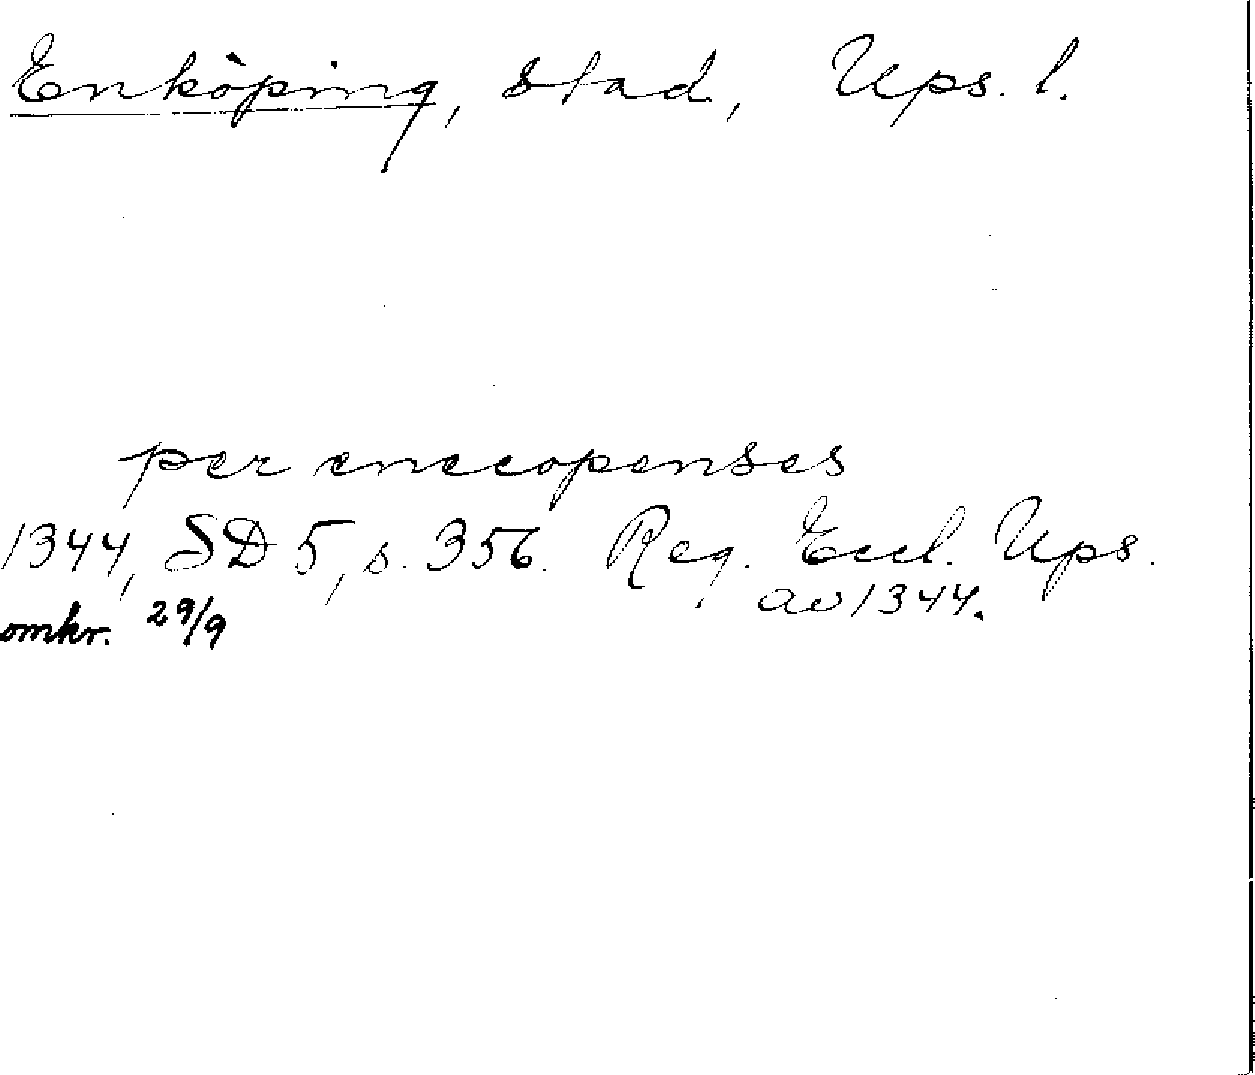 Enköping, stad, Ups. l.
per enecopenses
1344, SD 5, s. 356. Reg. Eccl. Ups.
av 1344.
omkr. 29/9